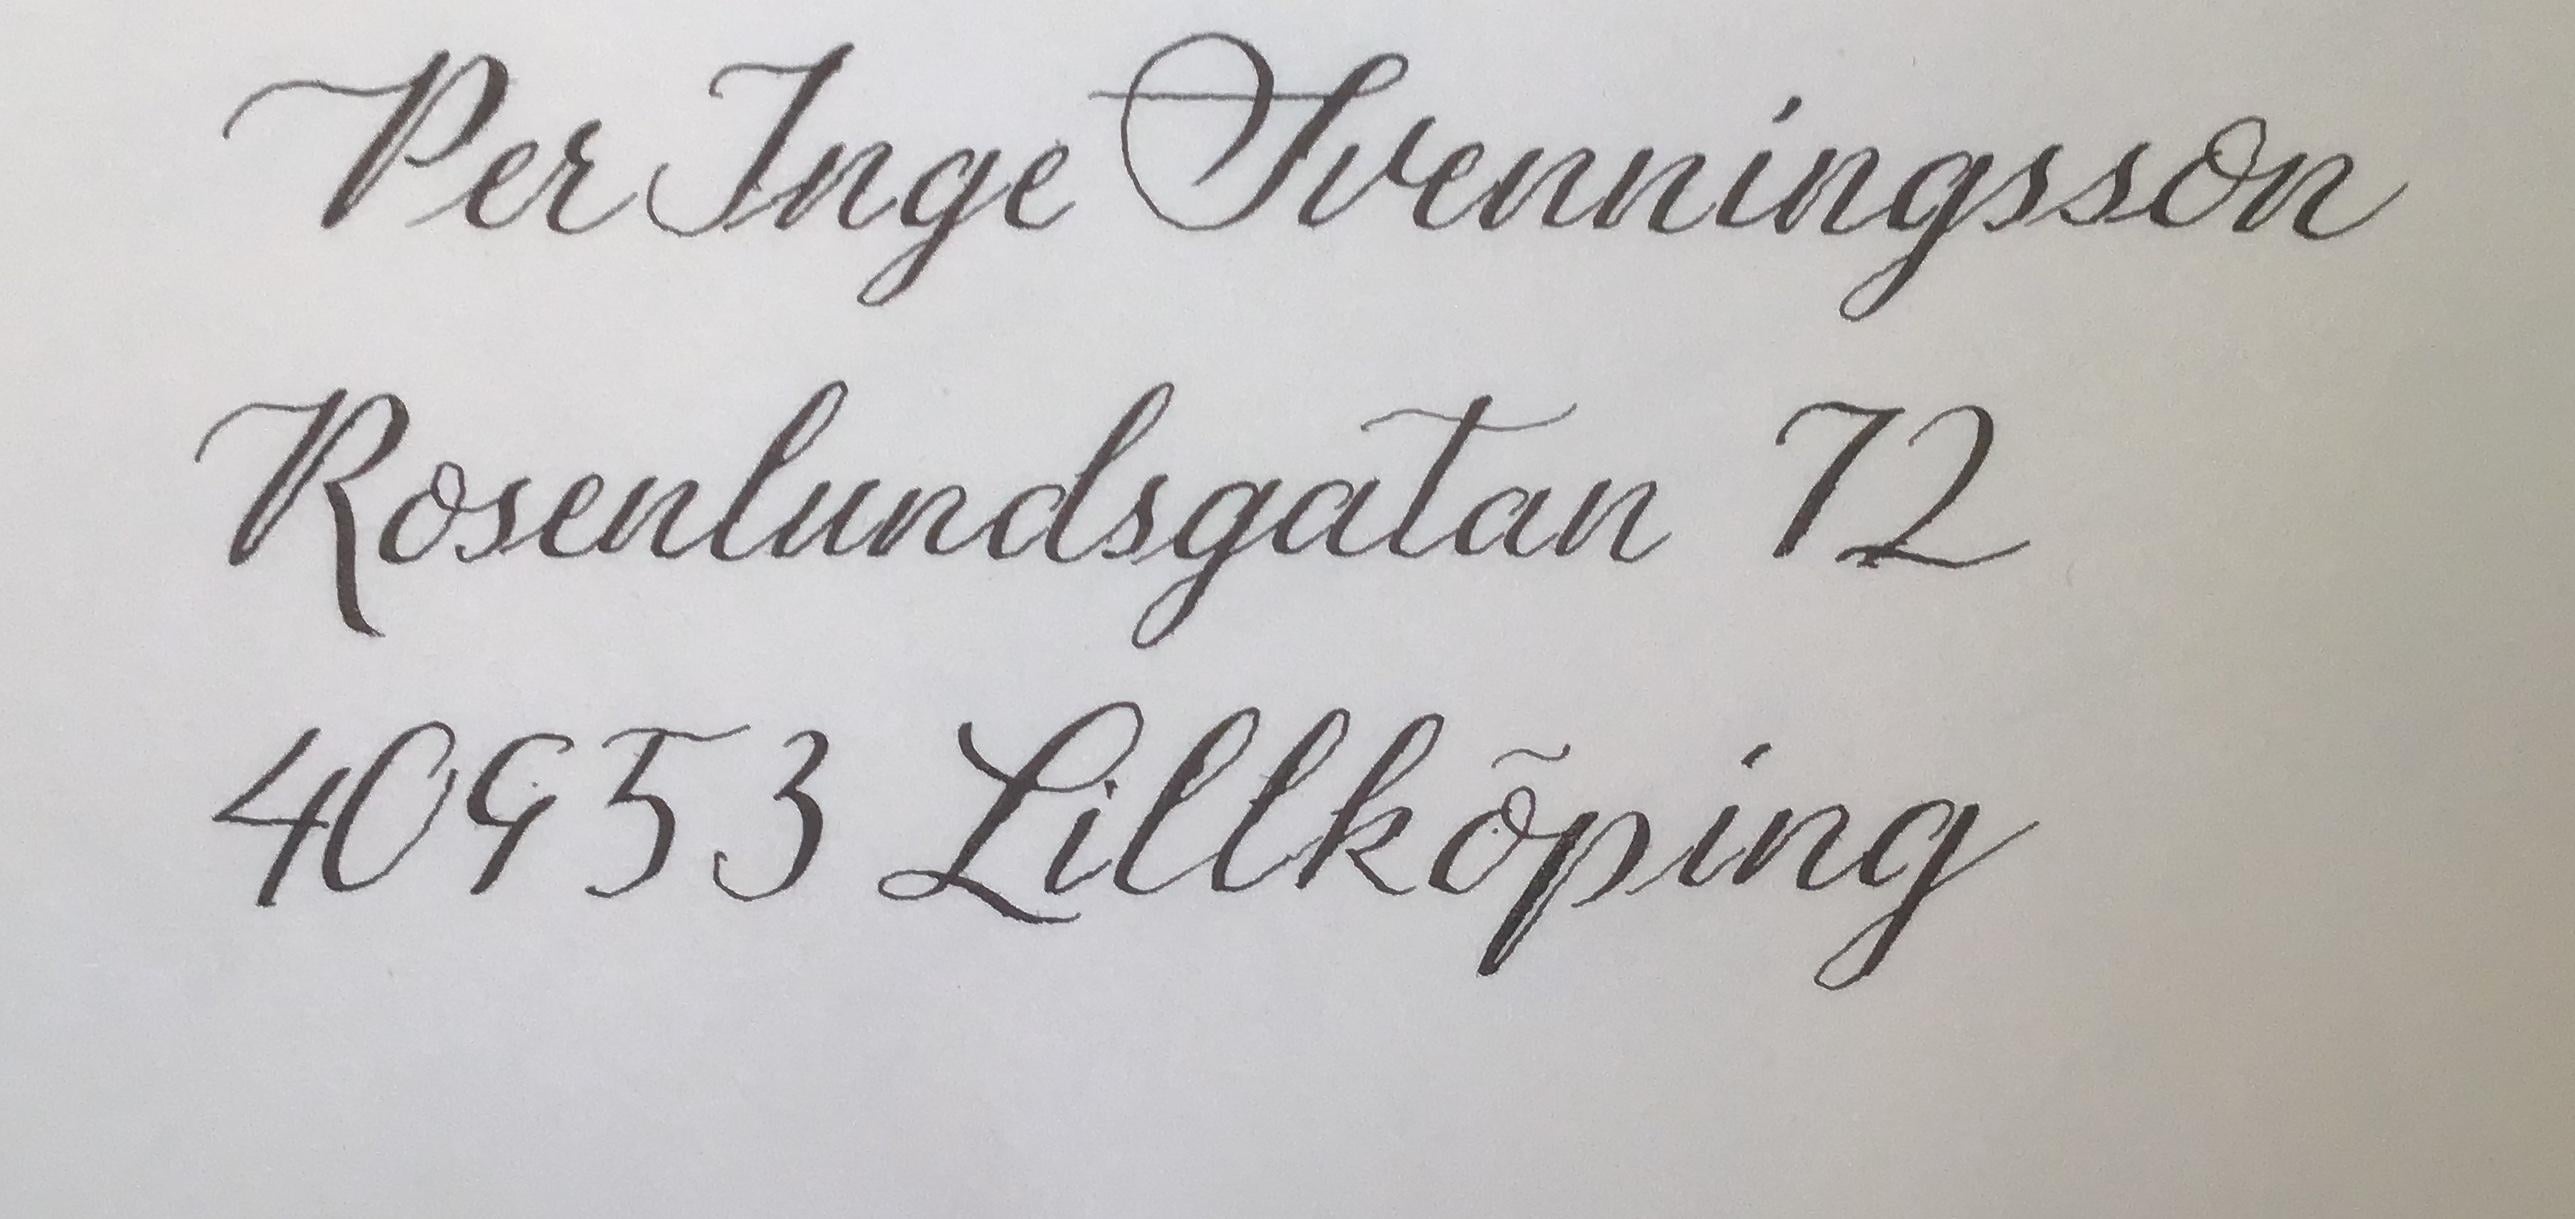 Per Inge Svenningsson
Rosenlundsgatan 72
40953 Lillkõping